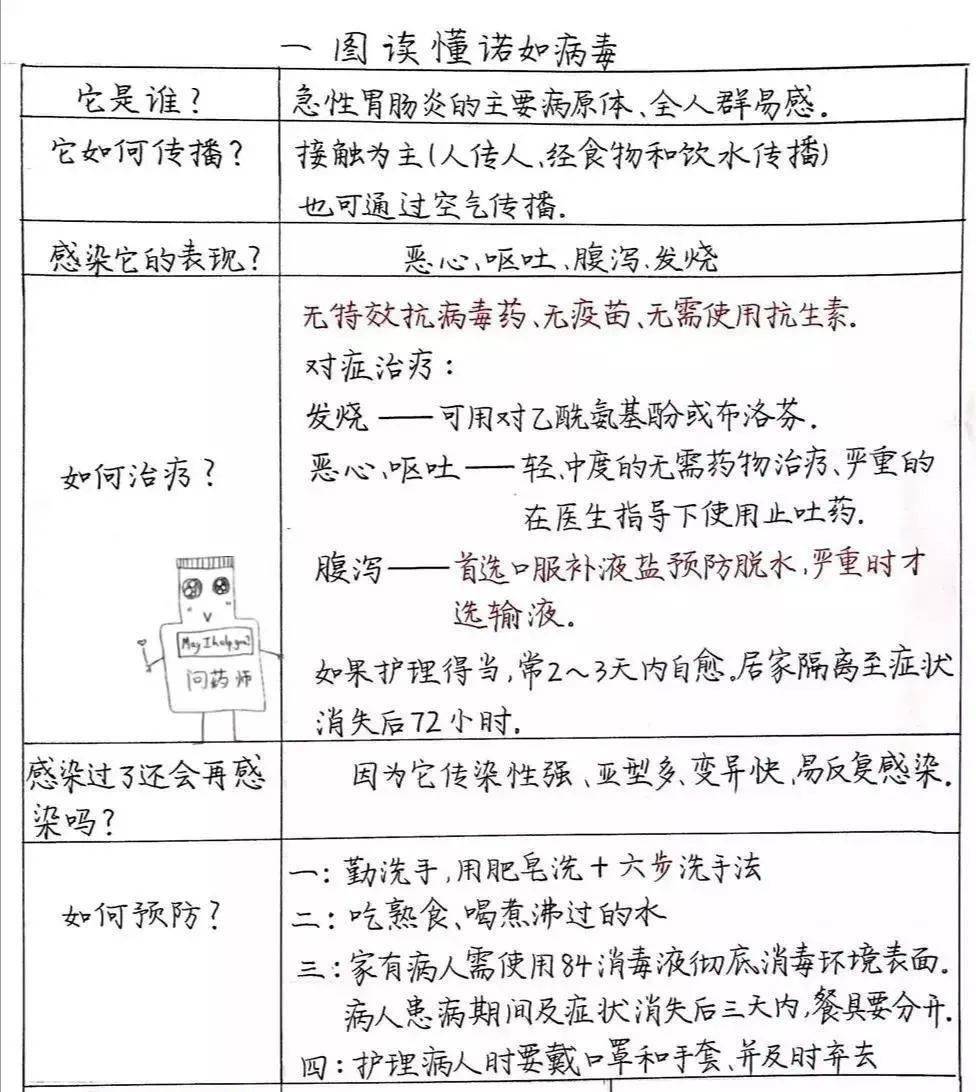 一图读懂诺如病毒
它是谁？
急性胃肠炎的主要病原体、全人群易感.
它如何传播？
接触为主(人传人、经食物和饮水传播)
也可通过空气传播.
感染它的表现？
恶心、呕吐、腹泻、发烧
如何治疗？
无特效抗病毒药、无疫苗、无需使用抗生素.
对症治疗：
发烧——可用对乙酰氨基酚或布洛芬.
恶心、呕吐——轻、中度的无需药物治疗、严重的
在医生指导下使用止吐药.
腹泻——首选口服补液盐预防脱水,严重时才
选输液。
如果护理得当,常2～3天内自愈。居家隔离至症状
消失后72小时.
May I help you?
问药师
感染过了还会再感
染吗？
因为它传染性强、亚型多、变异快、易反复感染.
如何预防？
一：勤洗手,用肥皂洗+六步洗手法
二：吃熟食、喝煮沸过的水
三：家有病人需使用84消毒液彻底消毒环境表面.
病人患病期间及症状消失后三天内,餐具要分开.
四：护理病人时要戴口罩和手套、并及时弃去